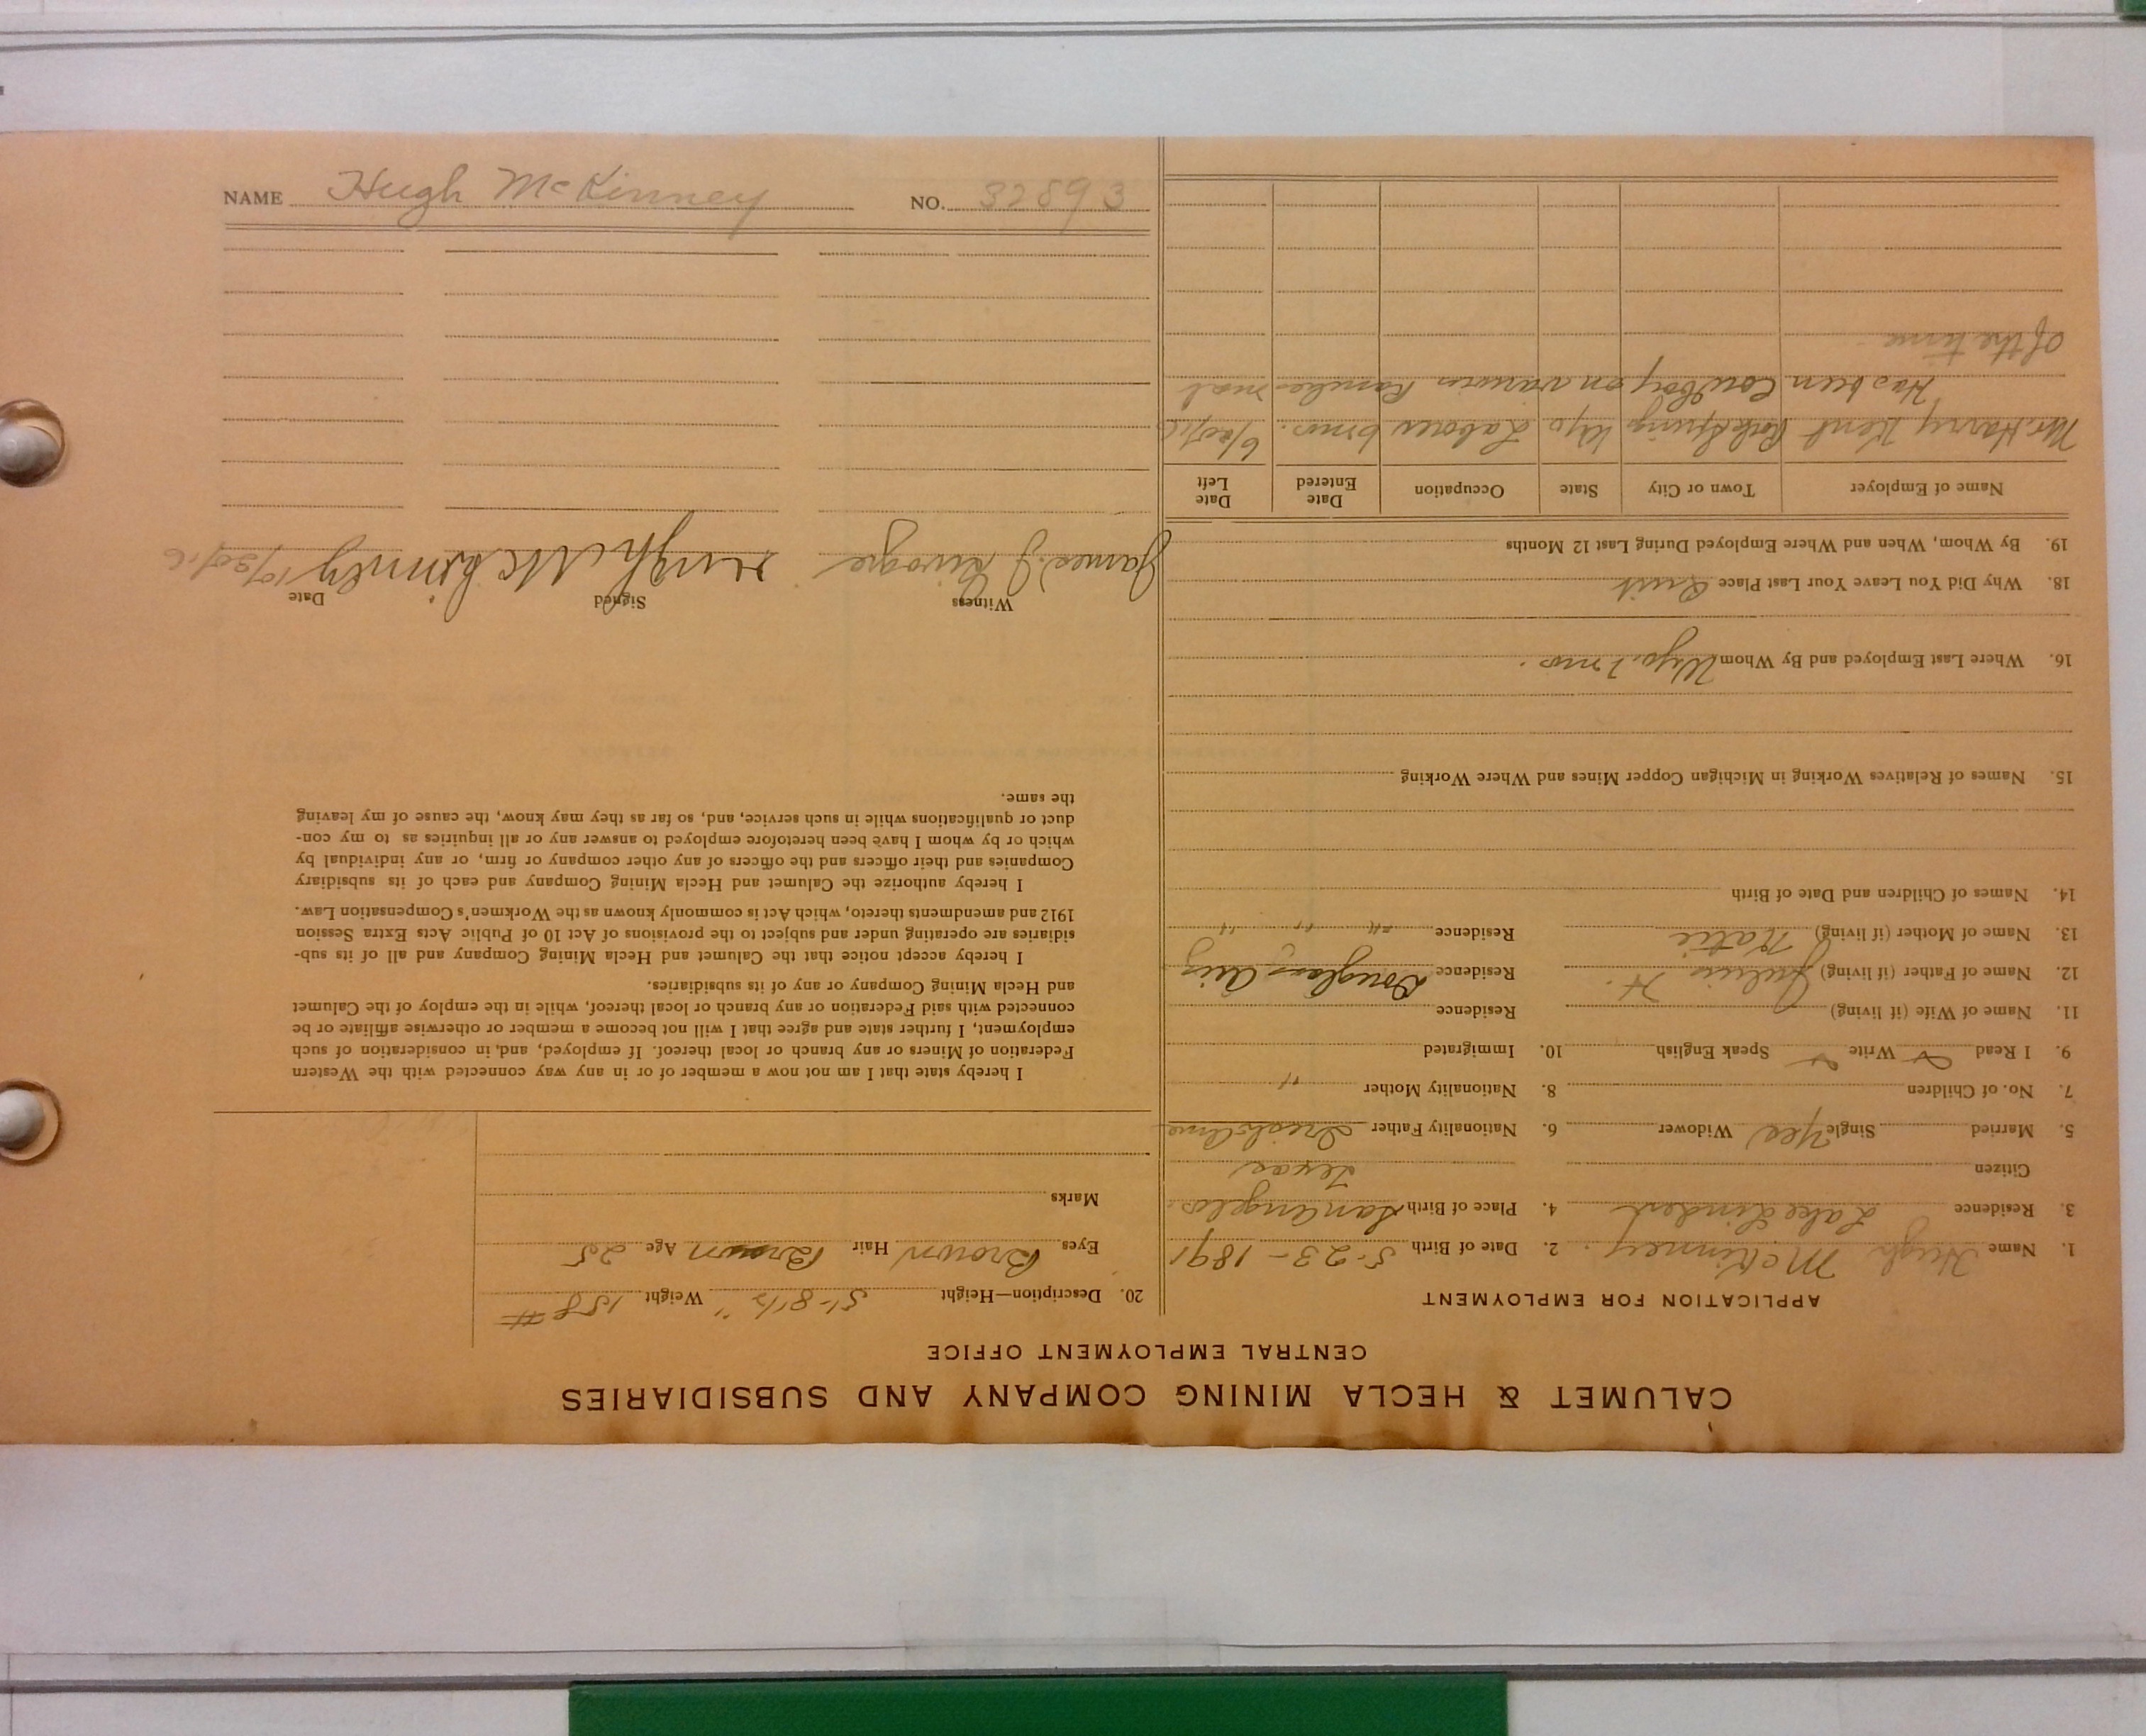 CALUMET & HECLA MINING COMPANY AND SUBSIDIARIES
CENTRAL EMPLOYMENT OFFICE
APPLICATION FOR EMPLOYMENT
1. Name Hugh McKinney. 2. Date of Birth 5-23-1891
3. Residence Lake Linden 4. Place of Birth San Angelo.
Citizen Texas
5. Married Single Yes Widower 6. Nationality Father Irish Amer
7. No. of Children 8. Nationality Mother "
9. I Read Write Speak English 10. Immigrated
11. Name of Wife (if living) Residence
12. Name of Father (if living) Julius H. Residence Douglas, Ariz
13. Name of Mother (if living) Katie Residence " " "
14. Names of Children and Date of Birth
15. Names of Relatives Working in Michigan Copper Mines and Where Working
16. Where Last Employed and By Whom Wyo. mos.
18. Why Did You Leave Your Last Place Quit
19. By Whom, When and Where Employed During Last 12 Months
Name of Employer Town or City State Occupation Date Entered Date Left
Mr. Harry Kent Rock Spring Wyo Laborer 6 mos. 6/20/16
Has been Cowboy on various Ranches most
of the time
20. Description—Height 5'-8½" Weight 158#
Eyes Brown Hair Brown Age 25
Marks
I hereby state that I am not now a member of or in any way connected with the Western
Federation of Miners or any branch or local thereof. If employed, and, in consideration of such
employment, I further state and agree that I will not become a member or otherwise affiliate or be
connected with said Federation or any branch or local thereof, while in the employ of the Calumet
and Hecla Mining Company or any of its subsidiaries.
I hereby accept notice that the Calumet and Hecla Mining Company and all of its sub-
sidiaries are operating under and subject to the provisions of Act 10 of Public Acts Extra Session
1912 and amendments thereto, which Act is commonly known as the Workmen's Compensation Law.
I hereby authorize the Calumet and Hecla Mining Company and each of its subsidiary
Companies and their officers and the officers of any other company or firm, or any individual by
which or by whom I have been heretofore employed to answer any or all inquiries as to my con-
duct or qualifications while in such service, and, so far as they may know, the cause of my leaving
the same.
Witness Signed Date
James J. Hugh McKinney 10/30/16
NAME Hugh McKinney NO. 32893